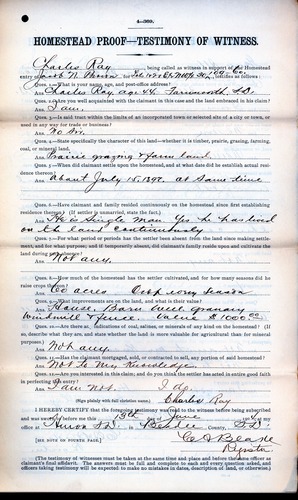 4-369.
HOMESTEAD PROOF—TESTIMONY OF WITNESS.
Charles Ray, being called as witness in support of the Homestead
entry of Jacob N. for testifies as follows:
Ques. 1.—What is your name, age, and post-office address?
Ans. Charles Ray, age 44, Farnsworth S.D.
Ques. 2.—Are you well acquainted with the claimant in this case and the land embraced in his claim?
Ans. I am.
Ques. 3.—Is said tract within the limits of an incorporated town or selected site of a city or town, or
used in any way for trade or business?
Ans. No Sir.
Ques. 4.—State specifically the character of this land—whether it is timber, prairie, grazing, farming,
coal, or mineral land.
Ans. Prairie grazing & farm land.
Ques. 5.—When did claimant settle upon the homestead, and at what date did he establish actual
residence thereon?
Ans. About July 15. at same time
Ques. 6.—Have claimant and family resided continuously on the homestead since first establishing
residence thereon? (If settler is unmarried, state the fact.)
Ans. He is Single Man. Yes he has lived
on the land continuously
Ques. 7.—For what period or periods has the settler been absent from the land since making settle-
ment, and for what purpose; and if temporarily absent, did claimant's family reside upon and cultivate the
land during such absence?
Ans. Not any.
Ques. 8.—How much of the homestead has the settler cultivated, and for how many seasons did he
raise crops thereon?
Ans. 60 acres Crop every season
Ques. 9.—What improvements are on the land, and what is their value?
Ans. House, Barn, well, granary
Windmill & fence. Value $1000.00
Ques. 10.—Are there any indications of coal, salines, or minerals of any kind on the homestead? (If
so, describe what they are, and state whether the land is more valuable for agricultural than for mineral
purposes.)
Ans. Not any.
Ques. 11.—Has the claimant mortgaged, sold, or contracted to sell, any portion of said homestead?
Ans. Not to My Knowledge.
Ques. 12.—Are you interested in this claim; and do you think the settler has acted in entire good faith
in perfecting this entry?
Ans. I am not. I do.
(Sign plainly with full christian name.) Charles Ray
I HEREBY CERTIFY that the foregoing testimony was read to the witness before being subscribed
and was sworn to before me this 13th day of June
at Huron S.D. Beadle County, S.D.
[SEE NOTE ON FOURTH PAGE.]
(The testimony of witnesses must be taken at the same time and place and before the same officer as
claimant's final affidavit. The answers must be full and complete to each and every question asked, and
officers taking testimony will be expected to make no mistakes in dates, description of land, or otherwise.)